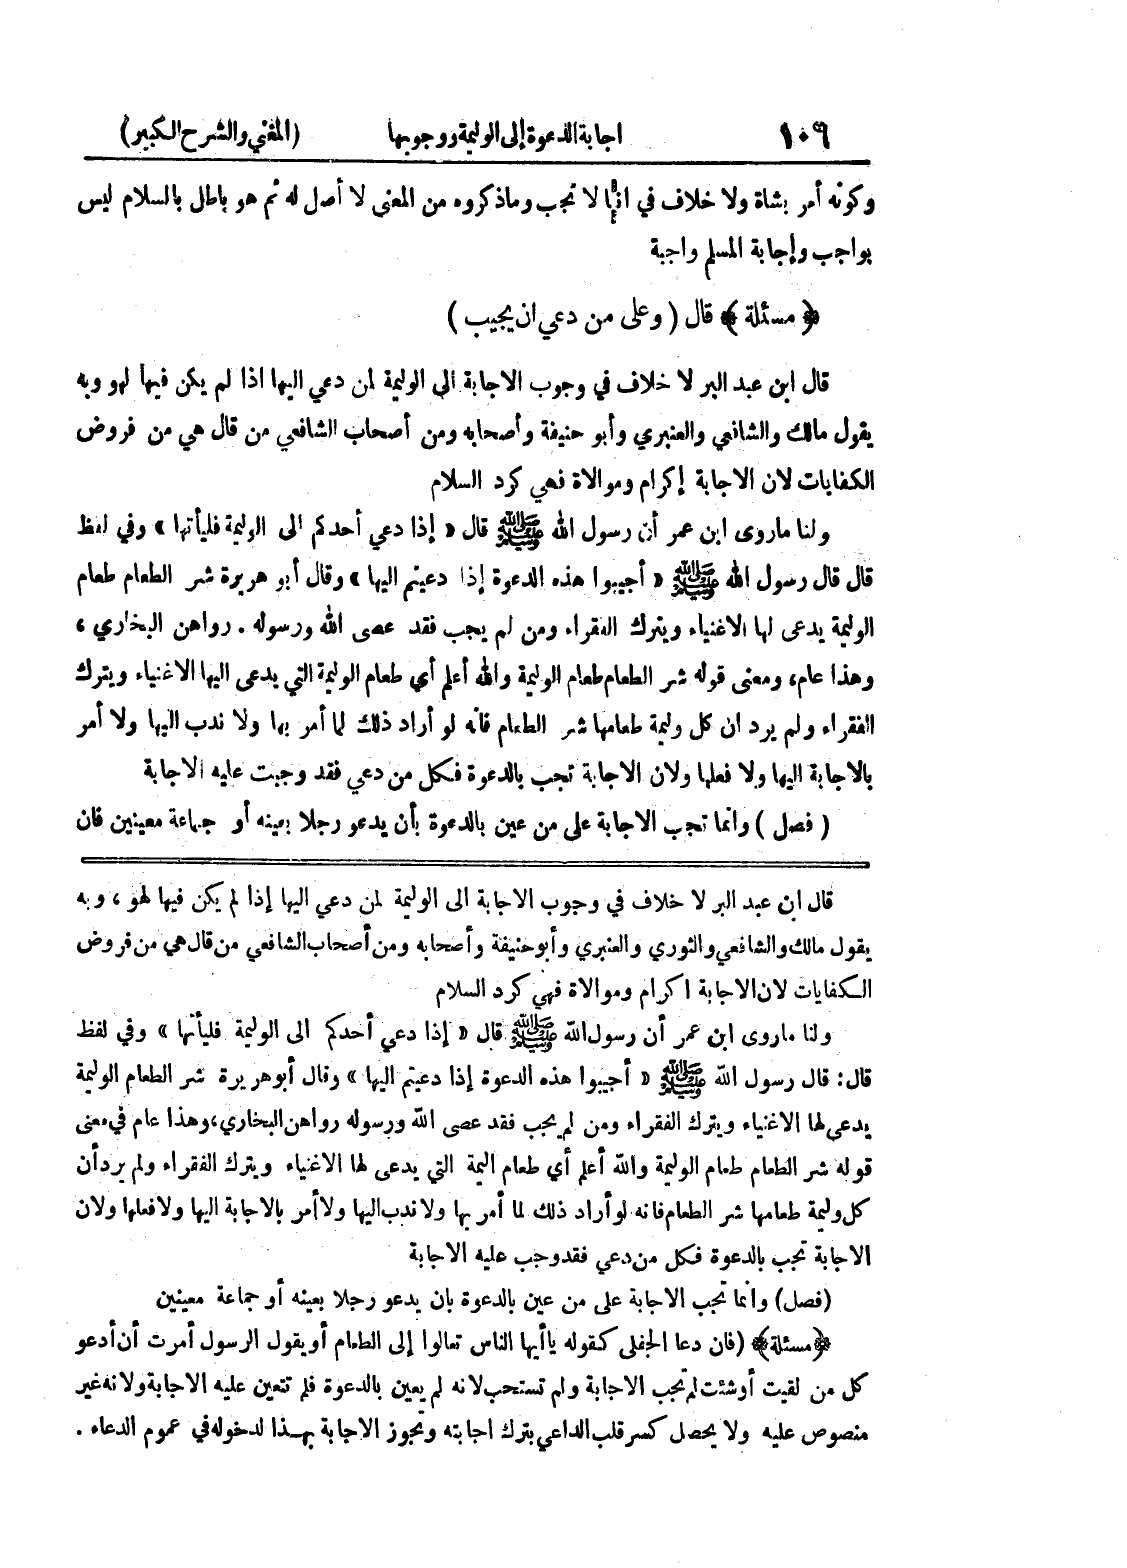 ١٠٩ اجابة الدعوة إلى الوليمة ووجوبها (المغني والشرح الكبير)
وكونه أمر بشاة ولا خلاف في انها لا تجب وماذكروه من المعنى لا أصل له ثم هو باطل بالسلام ليس
بواجب وإجابة المسلم واجبة
﴿ مسئلة ﴾ قال ( وعلى من دعي ان يجيب )
قال ابن عبد البر لا خلاف في وجوب الاجابة الى الوليمة لمن دعي اليها اذا لم يكن فيها لهو وبه
يقول مالك والشافعي والعنبري وأبو حنيفة وأصحابه ومن أصحاب الشافعي من قال هي من فروض
الكفايات لان الاجابة إكرام وموالاة فهي كرد السلام
ولنا ماروى ابن عمر أن رسول الله ﷺ قال « إذا دعي أحدكم الى الوليمة فليأتها » وفي لفظ
قال قال رسول الله ﷺ « أجيبوا هذه الدعوة إذا دعيتم اليها » وقال أبو هريرة شر الطعام طعام
الوليمة يدعى لها الاغنياء ويترك الفقراء ومن لم يجب فقد عصى الله ورسوله . رواهن البخاري ،
وهذا عام، ومعنى قوله شر الطعام طعام الوليمة والله أعلم أي طعام الوليمة التي يدعى اليها الاغنياء ويترك
الفقراء ولم يرد ان كل وليمة طعامها شر الطعام فانه لو أراد ذلك لما أمر بها ولا ندب اليها ولا أمر
بالاجابة اليها ولا فعلها ولان الاجابة تجب بالدعوة فكل من دعي فقد وجبت عليه الاجابة
( فصل ) وانما تجب الاجابة على من عين بالدعوة بأن يدعو رجلا بعينه أو جماعة معينين فان
قال ابن عبد البر لا خلاف في وجوب الاجابة الى الوليمة لمن دعي اليها إذا لم يكن فيها لهو ، وبه
يقول مالك والشافعي والثوري والعنبري وأبو حنيفة وأصحابه ومن أصحاب الشافعي من قال هي من فروض
الكفايات لان الاجابة اكرام وموالاة فهي كرد السلام
ولنا ماروى ابن عمر أن رسول الله ﷺ قال « إذا دعي أحدكم الى الوليمة فليأتها » وفي لفظ
قال: قال رسول الله ﷺ « أجيبوا هذه الدعوة إذا دعيتم اليها » وقال أبوهريرة شر الطعام الوليمة
يدعى لها الاغنياء ويترك الفقراء ومن لم يجب فقد عصى الله ورسوله رواهن البخاري، وهذا عام في معنى
قوله شر الطعام طعام الوليمة والله أعلم أي طعام اليمة التي يدعى لها الاغنياء ويترك الفقراء ولم يرد أن
كل وليمة طعامها شر الطعام فانه لو أراد ذلك لما أمر بها ولا ندب اليها ولا أمر بالاجابة اليها ولا فعلها ولان
الاجابة تجب بالدعوة فكل من دعي فقد وجب عليه الاجابة
(فصل) وانما تجب الاجابة على من عين بالدعوة بان يدعو رجلا بعينه أو جماعة معينين
﴿مسئلة﴾ (فان دعا الجفلى كقوله ياأيها الناس تعالوا إلى الطعام أو يقول الرسول أمرت أن أدعو
كل من لقيت أو شئت لم تجب الاجابة ولم تستحب لانه لم يعين بالدعوة فلم تتعين عليه الاجابة ولانه غير
منصوص عليه ولا يحصل كسر قلب الداعي بترك اجابته وتجوز الاجابة بهذا لدخوله في عموم الدعاء .